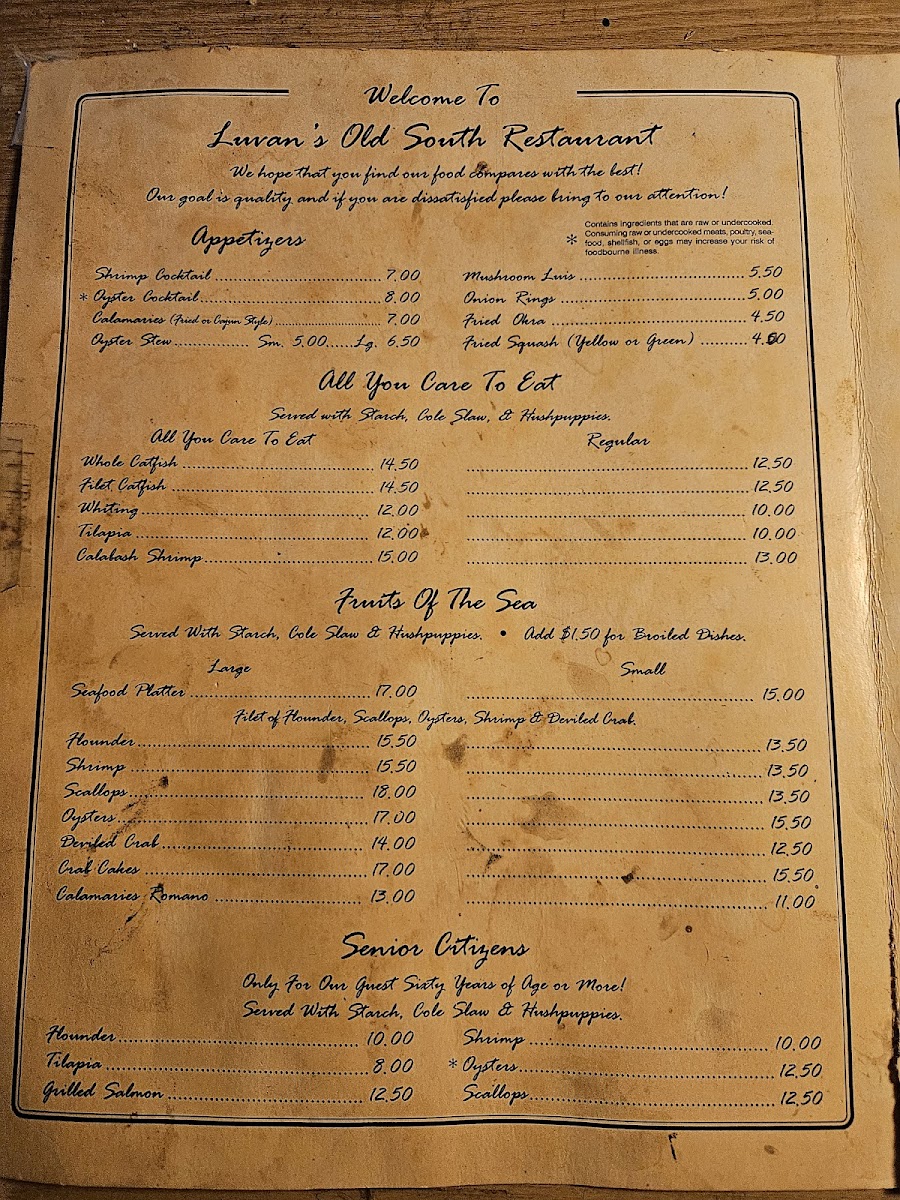 Welcome To
Luvan's Old South Restaurant
We hope that you find our food compares with the best!
Our goal is quality and if you are dissatisfied please bring to our attention!
Appetizers
* Contains ingredients that are raw or undercooked.
Consuming raw or undercooked meats, poultry, sea-
food, shellfish, or eggs may increase your risk of
foodbourne illness.
Shrimp Cocktail 7.00 Mushroom Luis 5.50
* Oyster Cocktail 8.00 Onion Rings 5.00
Calamaries (Fried or Cajun Style) 7.00 Fried Okra 4.50
Oyster Stew Sm. 5.00 Lg. 6.50 Fried Squash (Yellow or Green) 4.50
All You Care To Eat
Served with Starch, Cole Slaw, & Hushpuppies.
All You Care To Eat Regular
Whole Catfish 14.50 12.50
Filet Catfish 14.50 12.50
Whiting 12.00 10.00
Tilapia 12.00 10.00
Calabash Shrimp 15.00 13.00
Fruits Of The Sea
Served With Starch, Cole Slaw & Hushpuppies. • Add $1.50 for Broiled Dishes.
Large Small
Seafood Platter 17.00 15.00
Filet of Flounder, Scallops, Oysters, Shrimp & Deviled Crab.
Flounder 15.50 13.50
Shrimp 15.50 13.50
Scallops 18.00 13.50
Oysters 17.00 15.50
Deviled Crab 14.00 12.50
Crab Cakes 17.00 15.50
Calamaries Romano 13.00 11.00
Senior Citizens
Only For Our Guest Sixty Years of Age or More!
Served With Starch, Cole Slaw & Hushpuppies.
Flounder 10.00 Shrimp 10.00
Tilapia 8.00 * Oysters 12.50
Grilled Salmon 12.50 Scallops 12.50